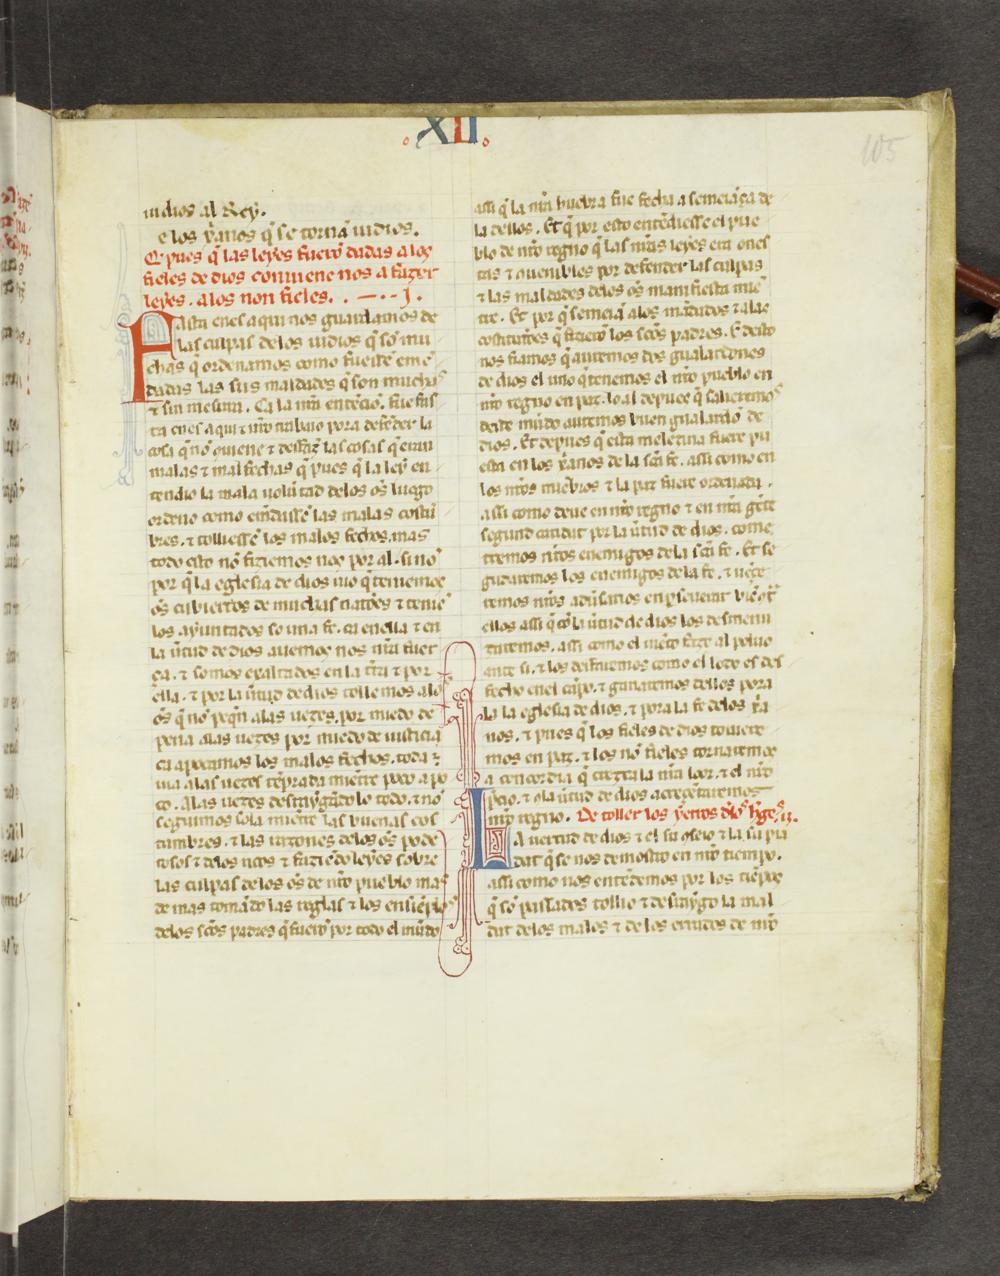 .XII.
105
iudios al Rey.
e los xp̃anos q̃ se tornã iudios.
E pues q̃ las leyes fuerõ dadas a los
fieles de dios conuiene nos a fazer
leyes. a los non fieles. . —..j.
Fasta en es aqui nos guardamos de
las culpas de los iudios q̃ so mu
chas q̃ ordenamos como fuesse
dadas las sus maldades q̃ son muchas
τ sin mesura. Ca la nr̃a entẽcio. fue fas
ta en es aqui τ nr̃o trabaio pora defẽder la
cosa q̃ no ouiene τ desfaz̃ las cosas q̃ eran
malas τ mal fechas q̃ pues q̃ la ley en
tendio la mala volũtad de los os̃ luego
ordeno como las malas costũ
bres. τ tolliesse los malos fechos. mas
todo esto no fiziemos nos por al. si no
por q̃ la eglesia de dios uio q̃ teniemos
os̃ cubiertos de muchas τ tenie
los ayuntados so una fe. ca en ella τ en
la ũtud de dios auemos nos nr̃a fuer
ça. τ somos exaltados en la τ por
ella. τ por la ũtud de dios tollemos a los
os̃ q̃ no peqn̄ a las uezes. por miedo de
pena a las uezes por miedo de iusticia
ca apocamos los malos fechos. toda
uia a las uezes tẽprada miente poco a po
co. A las uezes destruygãdo lo todo. τ no
seguimos sola miente las buenas cos
tumbres. τ las razones de los os̃ pode
rosos τ de los ricos τ faziẽdo leyes sobre
las culpas de los os̃ de nr̃o pueblo mas
de mas tomãdo las reglas τ los
de los sc̃os padres q̃ fuerõ por todo el mũdo
assi q̃ la nr̃a huebra fue fecha a semeiãça de
la dellos. Et q̃ por esto entẽdiesse el pue
blo de nr̃o regno q̃ las nr̃as leyes era ones
tas τ ouenibles por defender las culpas
τ las maldades de los os̃ manifiesta miẽ
tre. Et por q̃ semeia a los mãdados τ a las
q̃ fizierõ los sc̃os padres. E desto
nos fiamos q̃ auremos dos gualardones
de dios el uno q̃ tenemos el nr̃o pueblo en
nr̃o regno en paz. lo al depues q̃ salieremos
deste mũdo auremos buen gualardõ de
dios. Et depues q̃ esta melezina fuere pu
esta en los xp̃anos de la sc̃a fe. assi como en
los nr̃os miẽbros τ la paz fuere ordenada.
assi como deue en nr̃o regno τ en nr̃a gẽte
segund caridat por la ũtud de dios. come
tremos nr̃os enemigos de la sc̃a fe. Et se
gudaremos los enemigos de la fe. τ uẽçe
remos nr̃os aduersarios
ellos assi q̃ cõ la ũtud de dios los desmenu
zaremos. assi como el uiẽto faze al poluo
ante si. τ los desfaremos como el lodo es des
fecho en el cãpo. τ ganaremos dellos pora
la la eglesia de dios. τ pora la fe de los xp̃a
nos. τ pues q̃ los fieles de dios touiere
mos en paz. τ los no fieles tornaremos
a concordia q̃ creçera la nr̃a loor. τ el nr̃o
ĩperio. τ cõ la ũtud de dios acreçẽtaremos
nr̃o regno. De toller los yerros ij.
La uertud de dios τ el su oseio τ la su pia
dat q̃ se nos demostro en nr̃o tiempo.
assi como nos entẽdemos por los tiẽpos
q̃ so passados tollio τ destruygo la mal
dat de los malos τ de los errados de nr̃o